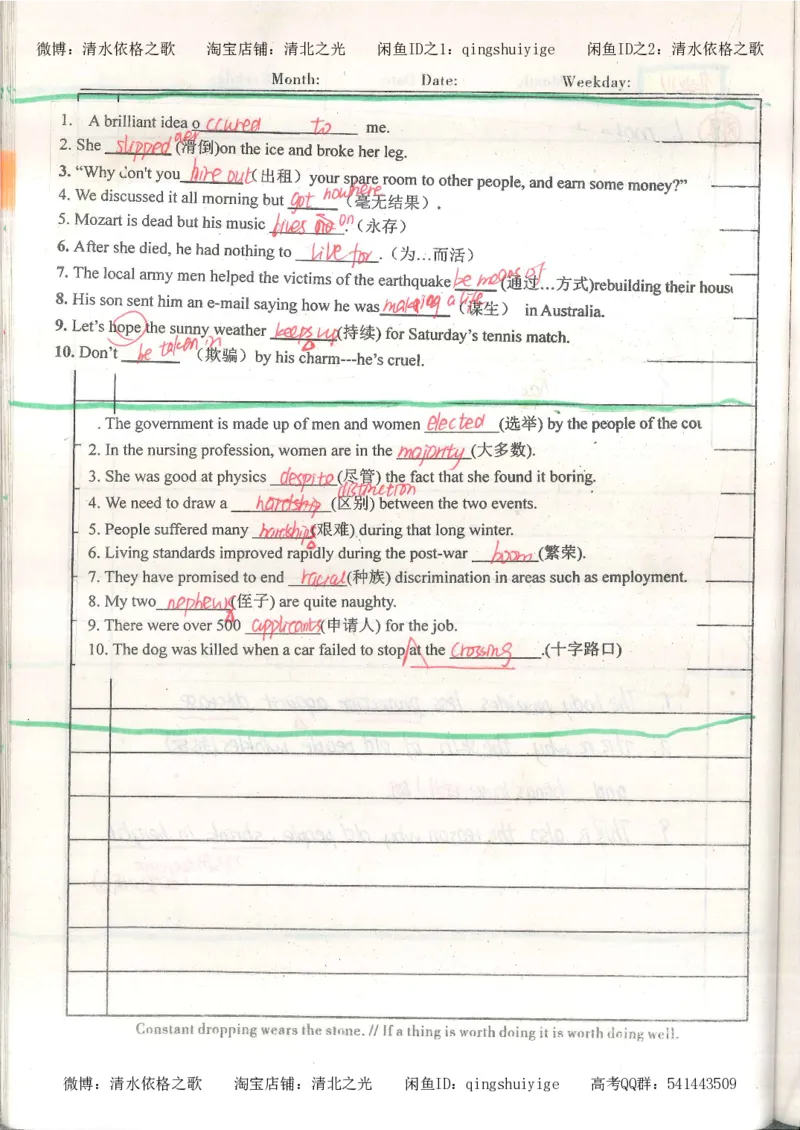 微博：清水依格之歌 淘宝店铺：清北之光 闲鱼ID之1：qingshuiyige 闲鱼ID之2：清水依格之歌
Month: Date: Weekday:
1. A brilliant idea o ccured to me.
2. She slipped (滑倒)on the ice and broke her leg.
3. “Why don't you hire out(出租) your spare room to other people, and earn some money?”
4. We discussed it all morning but got nowhere (毫无结果).
5. Mozart is dead but his music lives on.(永存)
6. After she died, he had nothing to live for.(为…而活)
7. The local army men helped the victims of the earthquake be means of (通过…方式)rebuilding their hous
8. His son sent him an e-mail saying how he was making a life (谋生) in Australia.
9. Let's hope the sunny weather keeps up(持续) for Saturday's tennis match.
10. Don't be taken in (欺骗) by his charm---he's cruel.
. The government is made up of men and women elected (选举) by the people of the cou
2. In the nursing profession, women are in the majority (大多数).
3. She was good at physics despite (尽管) the fact that she found it boring.
distinction
4. We need to draw a hardship (区别) between the two events.
5. People suffered many hardships(艰难) during that long winter.
6. Living standards improved rapidly during the post-war boom (繁荣).
7. They have promised to end racial(种族) discrimination in areas such as employment.
8. My two nephews(侄子) are quite naughty.
9. There were over 500 applicants(申请人) for the job.
10. The dog was killed when a car failed to stop at the crossing .(十字路口)
Constant dropping wears the stone. // If a thing is worth doing it is worth doing well.
微博：清水依格之歌 淘宝店铺：清北之光 闲鱼ID：qingshuiyige 高考QQ群：541443509